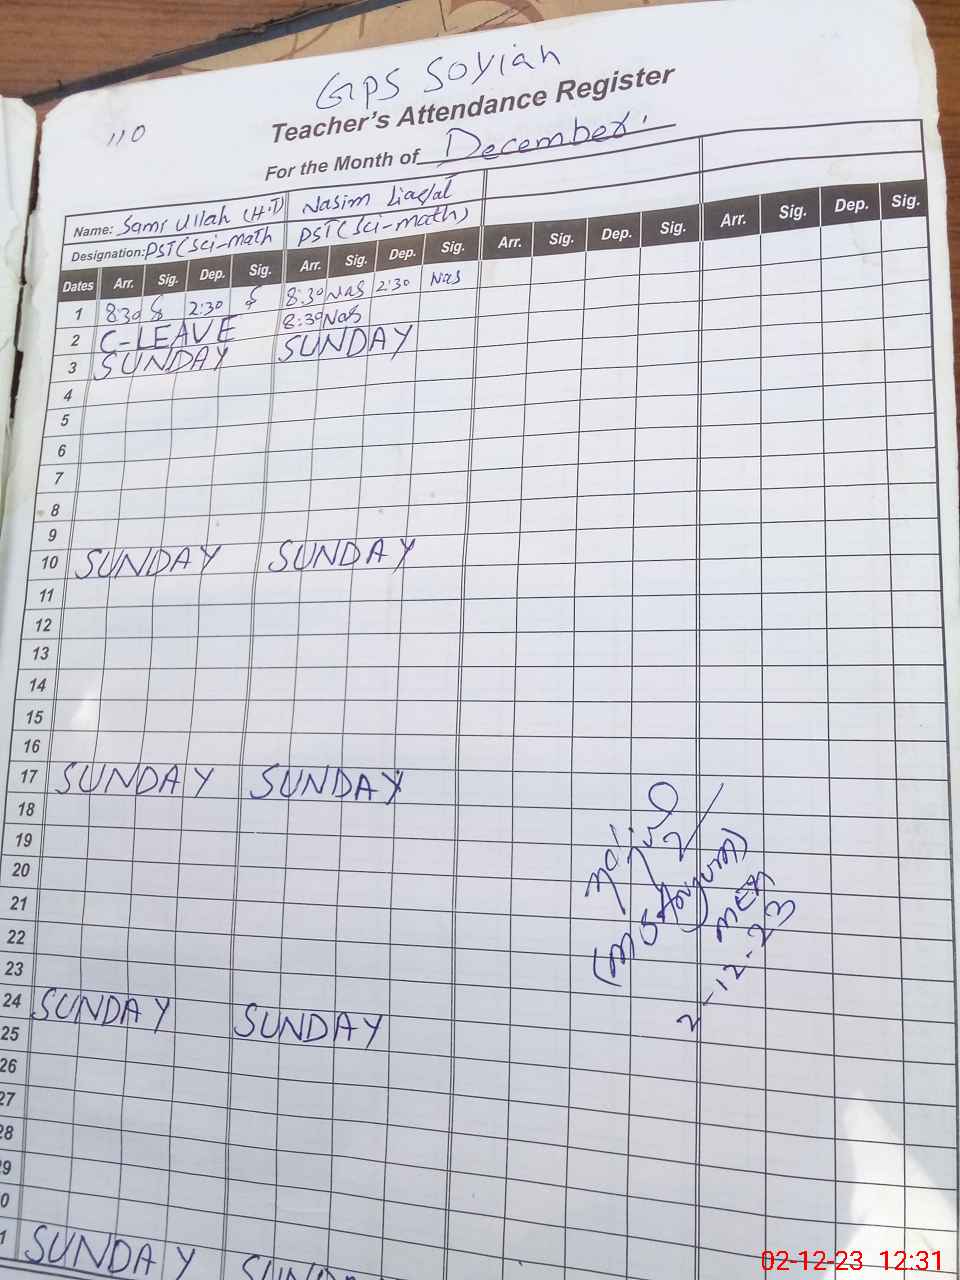 GPS Soyiah
110
Teacher's Attendance Register
For the Month of December.
Name: Sami Ullah (H.T) Nasim Liaqat
Designation: PST (Sci-math PST (Sci-math)
Dates Arr. Sig. Dep. Sig. Arr. Sig. Dep. Sig. Arr. Sig. Dep. Sig. Arr. Sig. Dep. Sig.
1 8:30 2:30 8:30 Nas 2:30 Nas
2 C-LEAVE 8:30 Nas
3 SUNDAY SUNDAY
4
5
6
7
8
9
10 SUNDAY SUNDAY
11
12
13
14
15
16
17 SUNDAY SUNDAY
18
19
20
21
22
23
24 SUNDAY SUNDAY
25
26
27
28
29
0
1 SUNDAY SUNDA
MEA
2-12-23
02-12-23 12:31